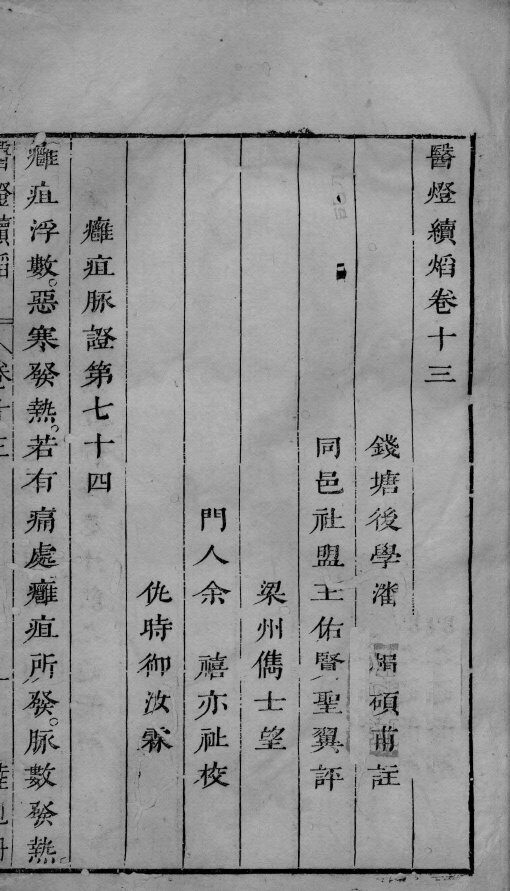 醫燈續焰卷十三
錢塘後學潘 楫碩甫註
同邑社盟王佑賢聖翼評
梁州儁士望
門人余 禧亦祉校
仇時御汝霖
癰疽脈證第七十四
癰疽浮數。惡寒發熱。若有痛處癰疽所發。脈數發熱
醫燈續焰 卷十三 一